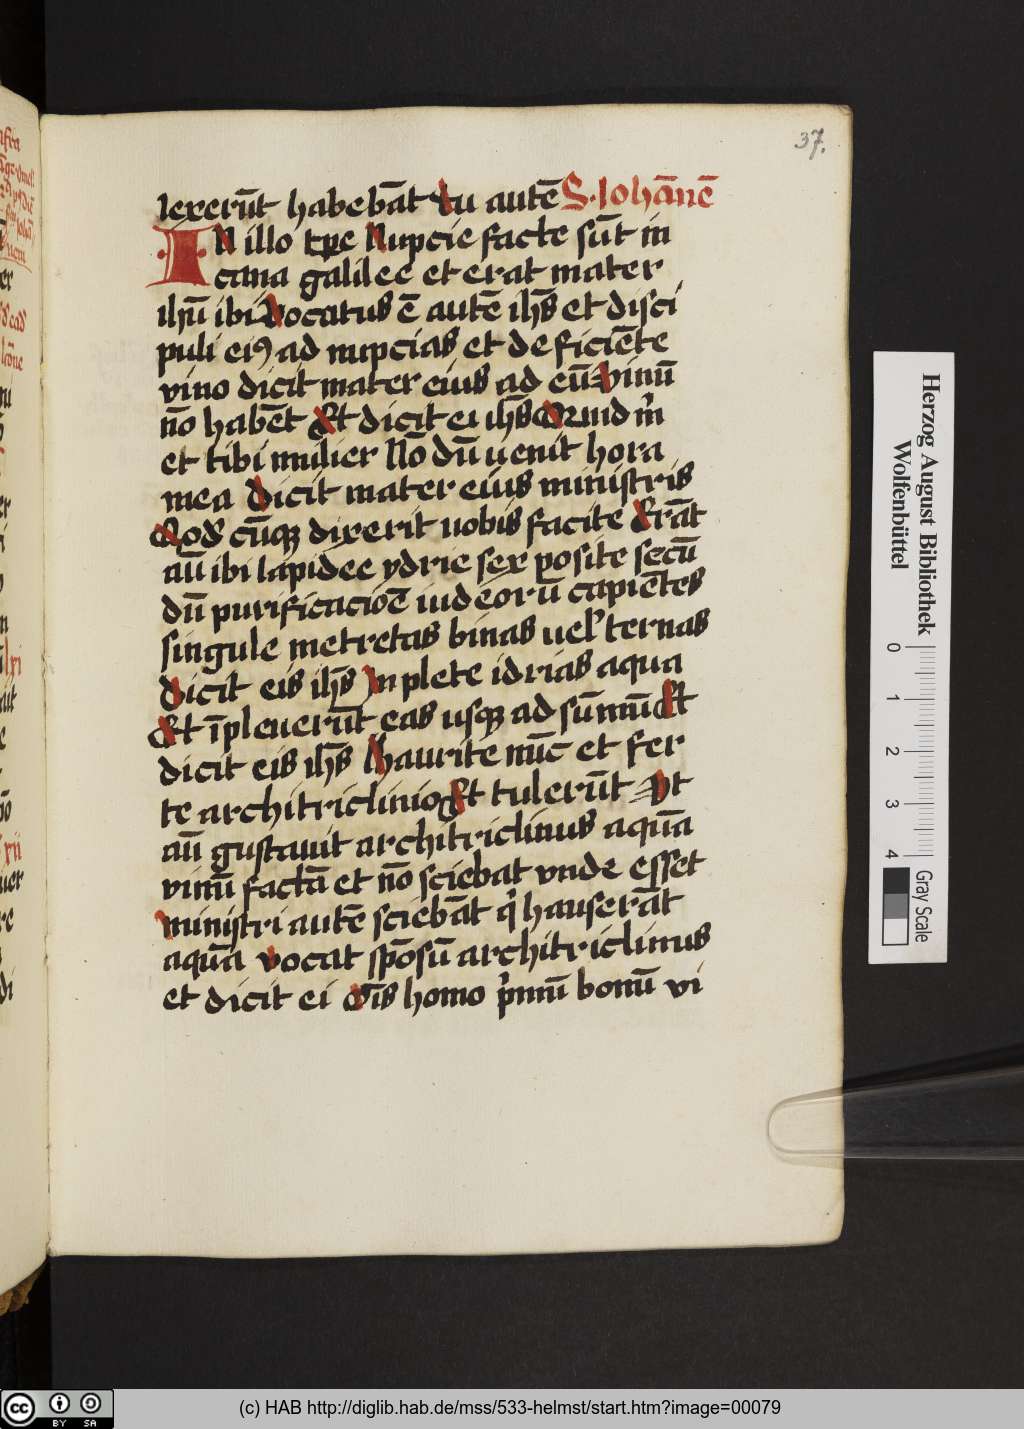 37.
lexerūt habebāt Tu autē S. Iohānē
IN illo tpe Nupcie facte sūt in
cana galilee et erat mater
ihū ibi Vocatus ē autē ihs̄ et disci
puli eiꝰ ad nupcias et deficiēte
vino dicit mater eius ad eū vinū
nō habēt Et dicit ei ihs̄ Quid m̄
et tibi mulier Nō dū uenit hora
mea Dicit mater eius ministris
Qod cūqꝫ dixerit uobis facite Erāt
aū ibi lapidee ydrie sex posite secū
dū purificacioē iudeorū capiētes
singule metretas binas uel ternas
Dicit eis ihs̄ Inplete idrias aqua
Et īpleuerūt eas usqꝫ ad sūmū Et
dicit eis ihs̄ Haurite nūc et fer
te architriclinio Et tulerūt Vt
aū gustauit architriclinus aquā
vinū factā et nō sciebat vnde esset
ministri autē sciebāt q̇ hauserāt
aquā vocat spōsū architriclinus
et dicit ei Oīs homo pͥmū bonū vi
Herzog August Bibliothek
Wolfenbüttel
0 1 2 3 4
Gray Scale
cc BY SA
(c) HAB http://diglib.hab.de/mss/533-helmst/start.htm?image=00079